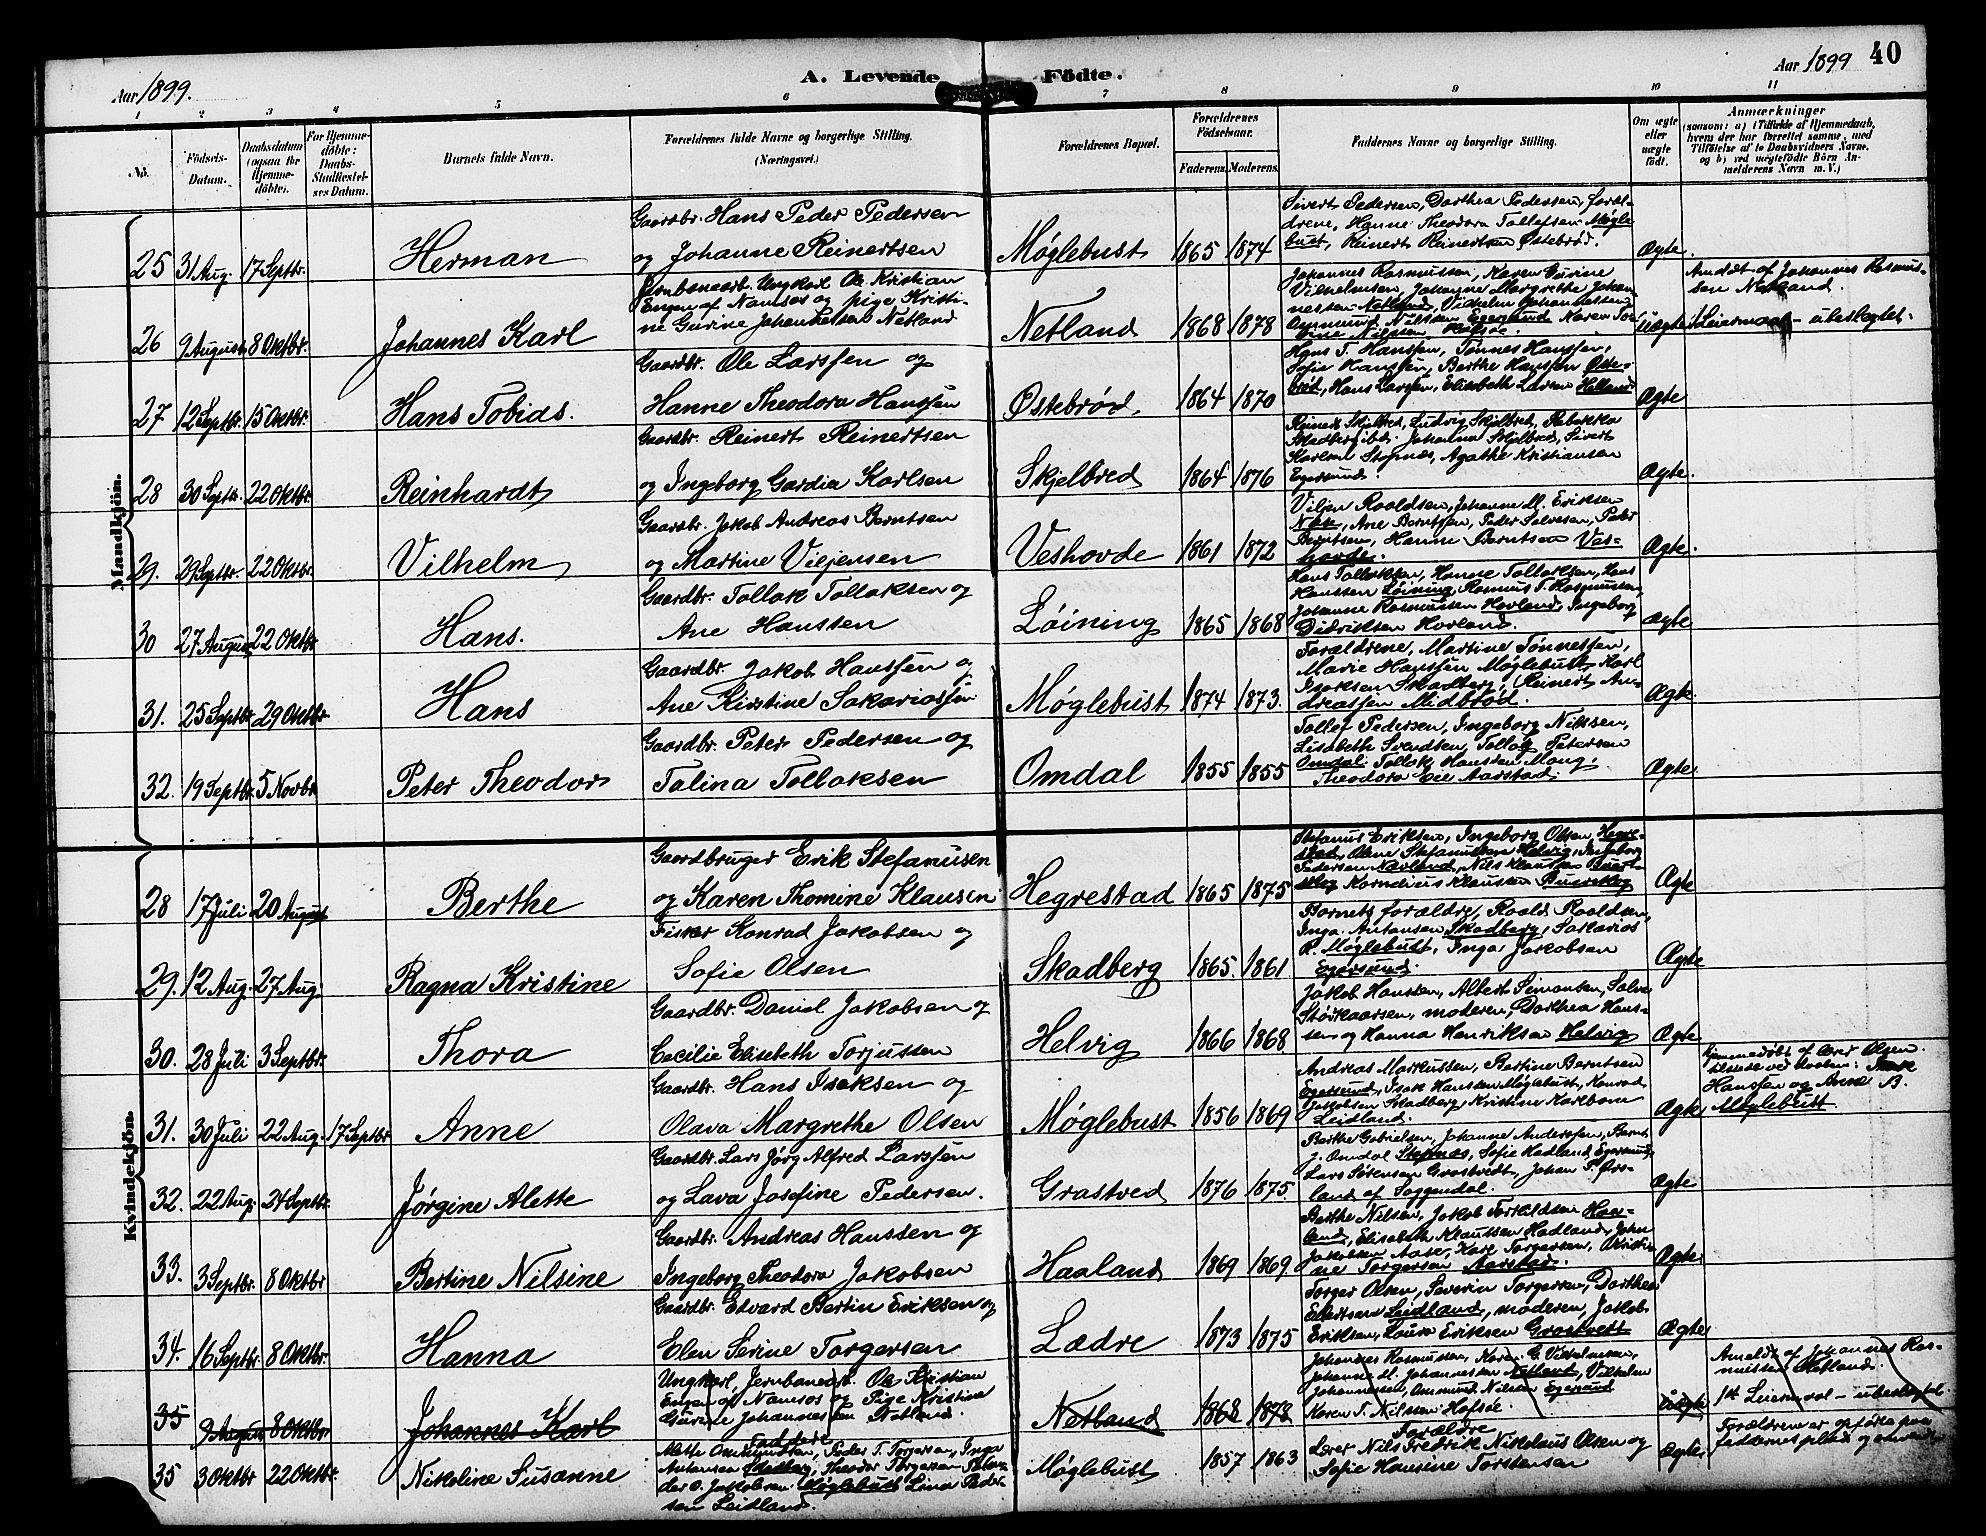 Aar 1899.
A. Levende Fødte.
Aar 1899
40
1 2 3 4 5 6 7 8 9 10 11
No.
Fødsels-
Datum.
Daabsdatum
(ogsaa for
Hjemme-
døbte).
For Hjemme-
døbte:
Daabs-
Stadfæstel-
ses Datum.
Barnets fulde Navn.
Forældrenes fulde Navne og borgerlige Stilling.
(Næringsvei.)
Forældrenes Bopæl.
Forældrenes
Fødselsaar.
Faderens. Moderens.
Faddernes Navne og borgerlige Stilling.
Om ægte
eller
uægte
født.
Anmærkninger
(saasom: a) i Tilfælde af Hjemmedaab,
hvem der har forrettet samme, med
Tilføielse af to Daabsvidners Navne,
og b) ved uægtefødte Børn An-
melderens Navn m. V.)
Mandkjøn.
25 31 Aug. 17 Septbr. Herman
Gaardbr. Hans Peder Pedersen
og Johanne Reinertsen
Møglebust 1865 1874
Sivert Pedersen, Dorthea Pedersen, foræl-
drene, Hanne Theodora Tollefsen Møgle-
bust, Reinert Reinertsen Østebrød.
Ægte.
26 9 August 8 Oktbr. Johannes Karl
Jernbanearb. Ungkarl Ole Kristian
Engen af Namsos og pige Kristi-
ne Gurine Johannesen Netland
Netland 1868 1878
Johannes Rasmussen, Karen Gurine
Vilhelmsen, Johanne Margrethe Johan-
nessen Netland, Vilhelm Johannessen,
Ammund Nilssen Egersund
uægte
Anmeldt af Johannes Rasmus-
sen Netland.
1 Leiermaal - ubeslægtet.
27 12 Septbr. 15 Oktbr. Hans Tobias.
Gaardbr. Ole Larssen og
Hanne Theodora Hanssen
Østebrød 1864 1870
Hans T. Hanssen, Tønnes Hanssen,
Sofie Hanssen, Berthe Hanssen Øste-
brød, Hans Larsen, Elisabeth Larsen Helland
Ægte
28 30 Septbr. 22 Oktbr. Reinhardt
Gaardbr. Reinert Reinertsen
og Ingeborg Gardia Karlsen
Skjelbred 1864 1876
Reinert Skjelbred, Ludvig Skjelbred, Rebekka
Skadberg ibd. Johanna Skjelbred, Sivert
Karlsen Stapnæs, Agathe Kristiansen
Egersund.
Ægte.
29. 29 Septbr. 22 Oktbr. Vilhelm
Gaardbr. Jakob Andreas Berntsen
og Martine Viljensen
Veshovde 1861 1872
Viljen Roaldsen, Johanne M. Eriksen
Ane Berntsen, Peder Salvesen, Peder
Berntsen, Hanne Berntsen Ves-
hovde.
Ægte.
30 27 August 22 Oktbr. Hans.
Gaardbr. Tollak Tollaksen og
Ane Hanssen
Løining 1865 1868
Hans Tollaksen, Hanne Tollaksen, Hans
Hanssen Løining, Rasmus T. Rasmussen,
Johanne Rasmussen Hovland, Ingeborg
Didriksen Hovland.
Ægte
31. 25 Septbr. 29 Oktbr. Hans
Gaardbr. Jakob Hanssen og
Ane Kirstine Sakariassen
Møglebust 1874 1873.
Forældrene, Martine Tønnessen,
Marie Hanssen Møglebust, Karl
Isaksen Skadberg, Reinert An-
dreassen Midbrød.
Ægte.
32. 19 Septbr. 5 Novbr. Peter Theodor
Gaardbr. Peter Pedersen og
Talina Tollaksen
Omdal 1855 1855
Tollef Pedersen, Ingeborg Nilssen,
Lisabeth Svendsen, Tollag Petersen
Omdal. Tollak Hanssen Mong,
Theodora Eie Aarstad.
Ægte
Kvindekjøn.
28 17 Juli 20 August Berthe
Gaardbruger Erik Stefanusen
og Karen Thomine Klausen
Hegrestad 1865 1875
Stefanus Eriksen, Ingeborg Olsen Hegre-
stad, Olene Stefanussen Helvig, Ingeborg
Pedersen Navland, Nils Klaussen
Kornelius Klaussen
Ægte
29. 12 Aug. 27 Aug. Ragna Kristine
Fisker Konrad Jakobsen og
Sofie Olsen
Skadberg 1865. 1861
Barnets forældre, Roald Roaldsen,
Inga Antonsen Skadberg, Sakarias
R. Møglebust, Inga Jakobsen
Egersund.
Ægte
30. 28 Juli 3 Septbr. Thora
Gaardbr. Daniel Jakobsen og
Cecilie Elisebeth Torjussen
Helvig 1866 1868
Jakob Hanssen, Albert Simonsen, Salve
Størkaarsen, moderen, Dorthea Hans-
sen og Hanna Henriksen Helvig
Ægte
31. 30 Juli 22 Aug. 17 Septbr Anne
Gaardbr. Hans Isaksen og
Olava Margrethe Olsen
Møglebust 1856 1869
Andreas Markussen, Bertine Berntsen
Egersund, Isak Hanssen Møglebust, Konrad
Jakobsen Skadberg, Kristine Karlsen
Leidland.
Ægte
Hjemmedøbt af Lærer Olsen.
tilstede ved daaben: Isak
Hanssen og Anne B.
Møglebust
32. 22 Aug. 24 Septbr. Jørgine Alette
Gaardbr. Lars Jørg. Alfred Larssen
og Lava Josefine Pedersen.
Grastved 1876 1875.
Berthe Gabrielsen, Johanne Anderssen, Bernt
J. Omdal Stapnæs, Sofie Hadland Egersund,
Lars Sørensen Grastvedt, Johan P. Ørs-
land af Soggendal.
Ægte
33. 3 Septbr. 8 Oktbr Bertine Nilsine
Gaardbr. Andreas Hanssen og
Ingeborg Theodora Jakobsen
Haaland 1869 1869
Berthe Nilsen, Jakob Torkildsen Haa-
land, Elisabeth Klaussen Hadland, John
Jakobsen Aase, Karl Torgersen, Kristi-
ne Torgersen Aarstad.
Ægte
34. 16 Septbr. 8 Oktbr. Hanna
Gaardbr. Edvard Bertin Eriksen og
Elen Serine Torgersen
Lædre 1873 1875
Torger Olsen, Severin Torgersen, Dorthea
Leidland, moderen, Jakob
Eriksen, Laura Eriksen Grastvedt
Ægte
35 9 August 8 Oktbr. Johannes Karl
Ungkarl, Jernbanearb. Ole Kristian
Engen af Namsos og Pige Kristine
Gurine Johannessen Netland.
Netland 1868 1878
Johannes Rasmussen, Karen G. Vilhelmsen,
Johanne M. Johannessen Netland, Vilhelm
Johannessen, Ammund Nilsen Egersund
Karen T. Nilssen Hofsøe.
uægte
Anmeldt af Johannes Ras-
mussen Netland.
1st Leiermaal - ubeslægtet.
35 3 Oktbr 22 Oktbr. Nikoline Susanne
Faddere
Mette Osmundsen, Peder T. Torgersen, Inga
Antonsen Skadberg, Theodor Torgersen,
der O. Jakobsen Møglebust, Lina Peder-
sen Leidland.
Møglebust 1857 1863
Forældre
Lærer Nils Fredrik Nikolaus Olsen og
Sofie Hansine Torstensen
Ægte
Forældrene er opførte paa
faddernes plads og omvendt